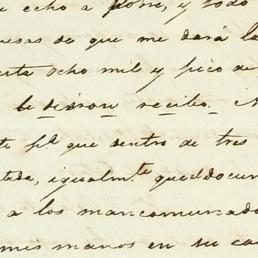 echo a pobre, y todo
de que me dará la
ocho mil y pico de
le dieron recibo.
que dentro de tres
igualm.te que el docum
a los mancomunado
mis manos en su ca